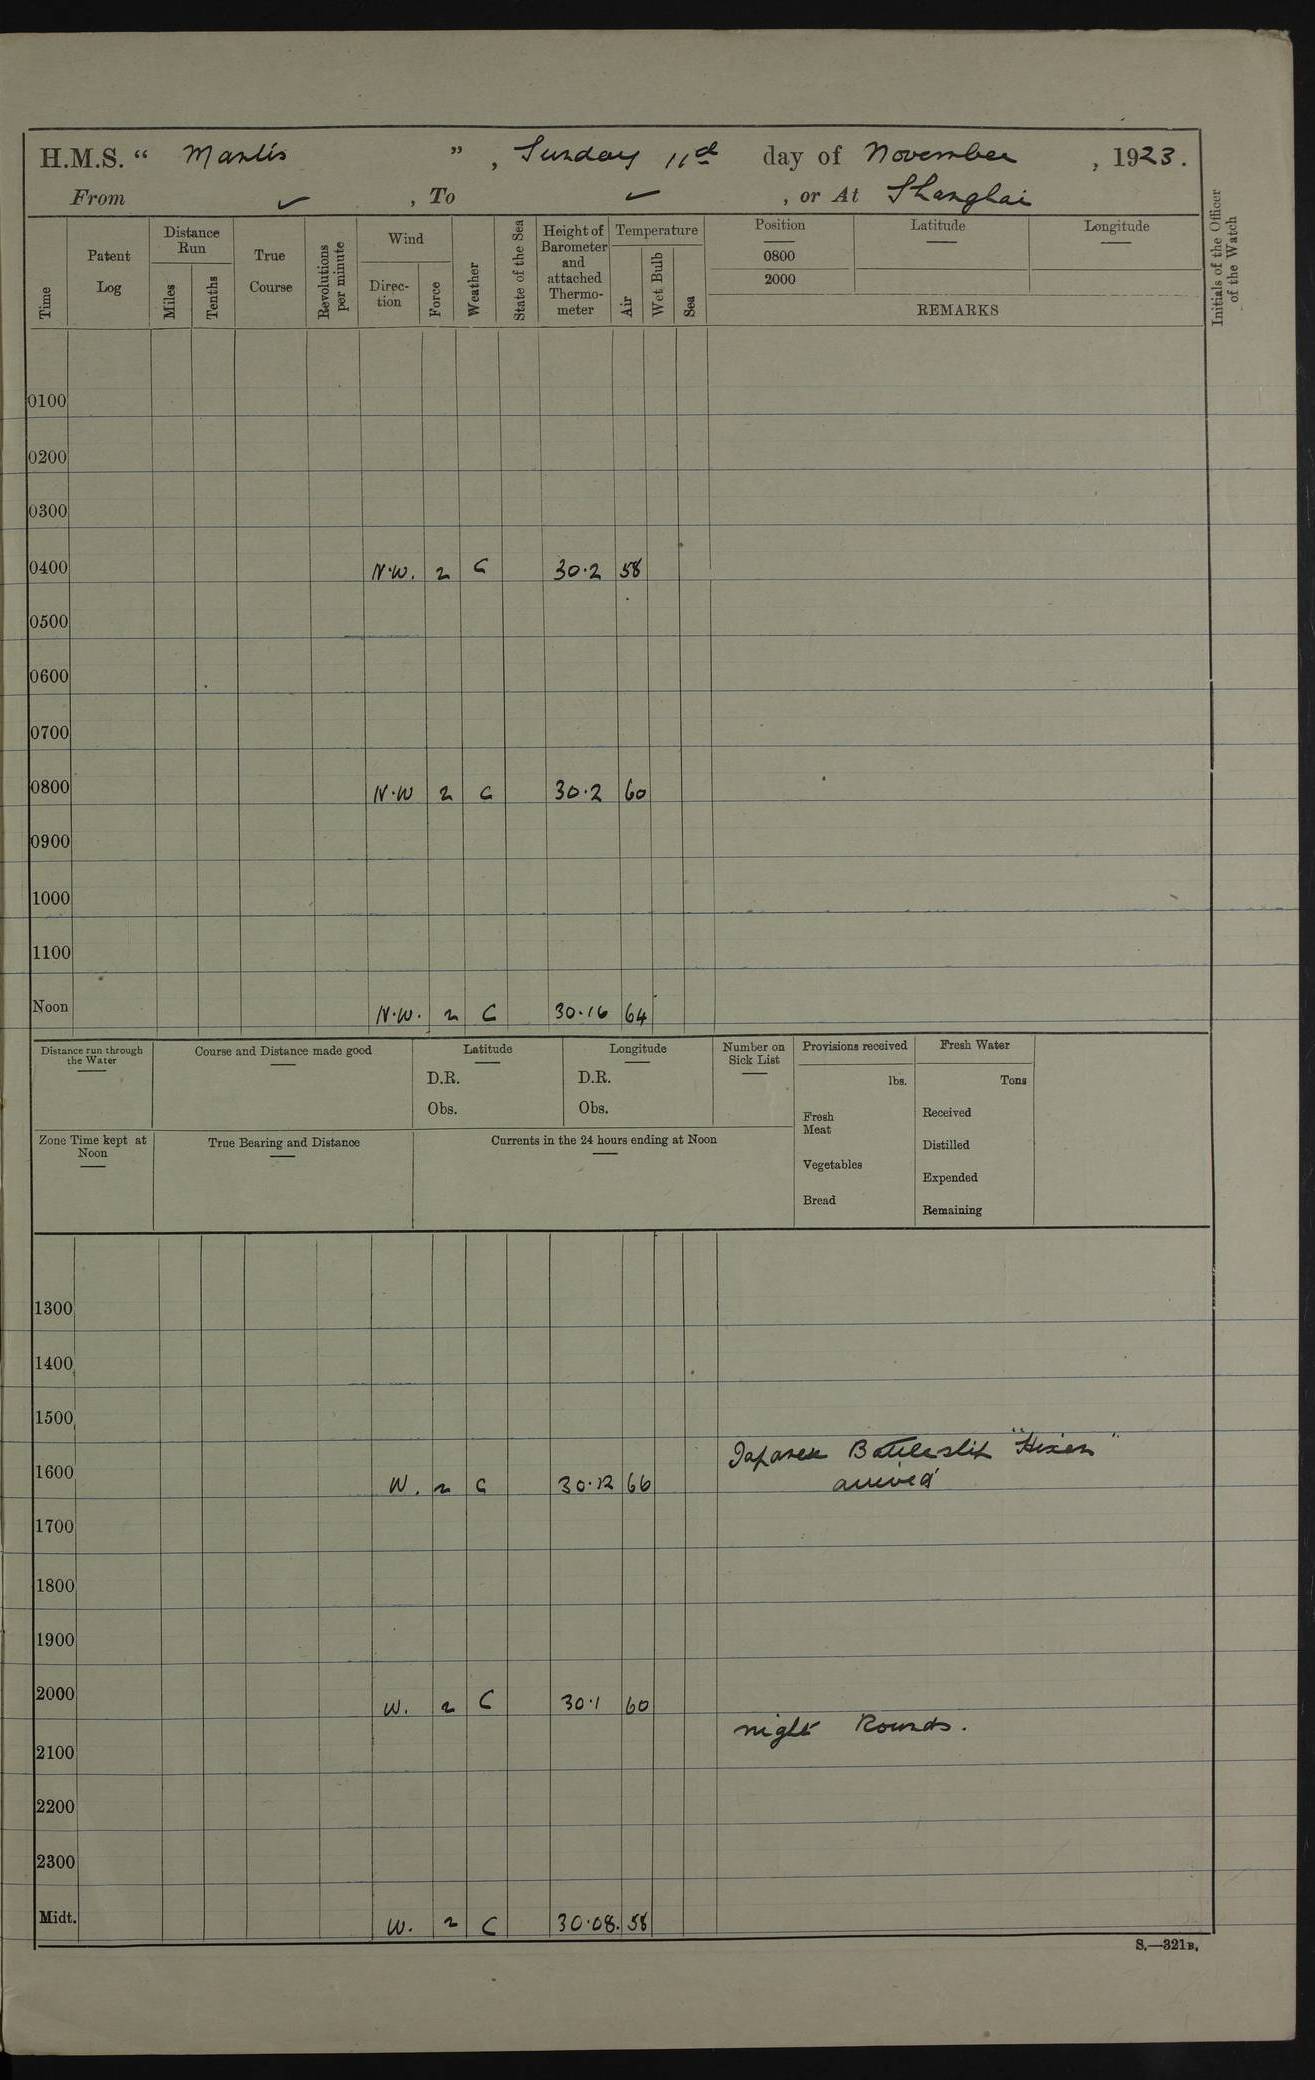 H.M.S. “ Mantis ” , Sunday 11th day of November , 1923.
From ✓ , To ✓ , or At Shanghai
Time
Patent Log
Distance Run
Miles
Tenths
True Course
Revolutions per minute
Wind
Direc-tion
Force
Weather
State of the Sea
Height of Barometer and attached Thermo-meter
Temperature
Air
Wet Bulb
Sea
Position
0800
2000
Latitude
Longitude
REMARKS
Initials of the Officer of the Watch
0100
0200
0300
0400 N.W. 2 C 30.2 58
0500
0600
0700
0800 N.W 2 C 30.2 60
0900
1000
1100
Noon N.W. 2 C 30.16 64
Distance run through the Water
Course and Distance made good
Latitude
D.R.
Obs.
Longitude
D.R.
Obs.
Number on Sick List
Provisions received
lbs.
Fresh Meat
Vegetables
Bread
Fresh Water
Tons
Received
Distilled
Expended
Remaining
Zone Time kept at Noon
True Bearing and Distance
Currents in the 24 hours ending at Noon
1300
1400
1500
Japanese Battleship
1600 W. 2 C 30.12 66 arrived
1700
1800
1900
2000 W. 2 C 30.1 60
night Rounds.
2100
2200
2300
Midt. W. 2 C 30.08. 58
S.—321B.